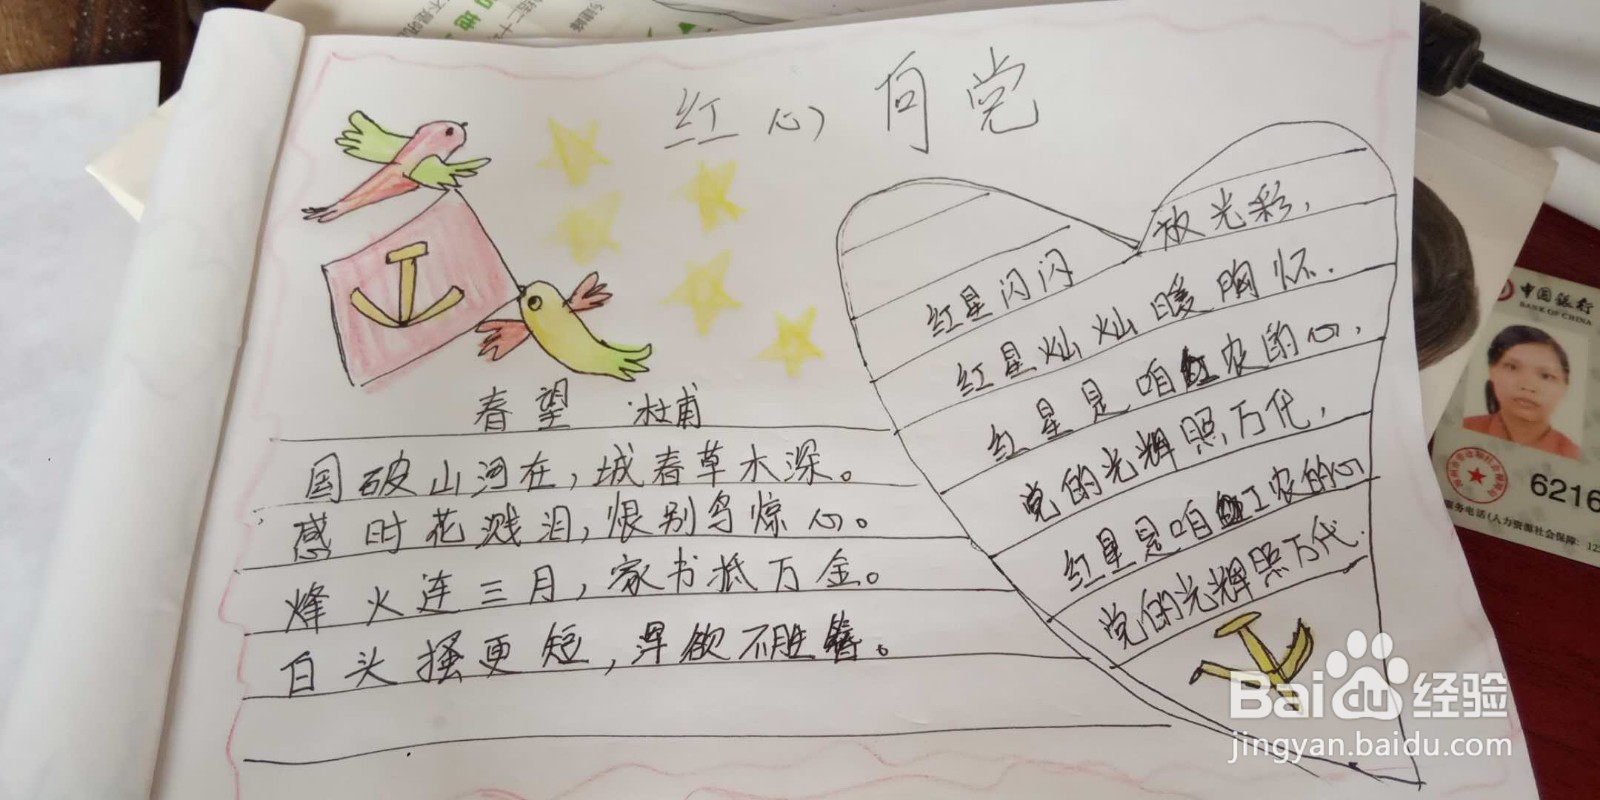 红心向党
春望 杜甫
国破山河在，城春草木深。
感时花溅泪，恨别鸟惊心。
烽火连三月，家书抵万金。
白头搔更短，浑欲不胜簪。
红星闪闪放光彩，
红星灿灿暖胸怀.
红星是咱红农的心，
党的光辉照万代，
红星是咱工农的心
党的光辉照万代.
中国银行
BANK OF CHINA
6216
Baidu经验
jingyan.baidu.com